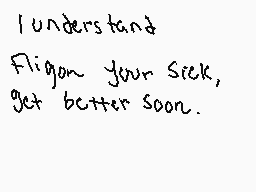 I understand
Fligon your sick,
get better soon.